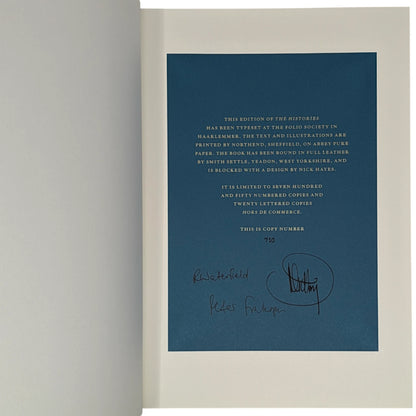 THIS EDITION OF THE HISTORIES
HAS BEEN TYPESET AT THE FOLIO SOCIETY IN
HAARLEMMER. THE TEXT AND ILLUSTRATIONS ARE
PRINTED BY NORTHEND, SHEFFIELD, ON ABBEY PURE
PAPER. THE BOOK HAS BEEN BOUND IN FULL LEATHER
BY SMITH SETTLE, YEADON, WEST YORKSHIRE, AND
IS BLOCKED WITH A DESIGN BY NICK HAYES.
IT IS LIMITED TO SEVEN HUNDRED
AND FIFTY NUMBERED COPIES AND
TWENTY LETTERED COPIES
HORS DE COMMERCE.
THIS IS COPY NUMBER
710
RWaterfield
Peter